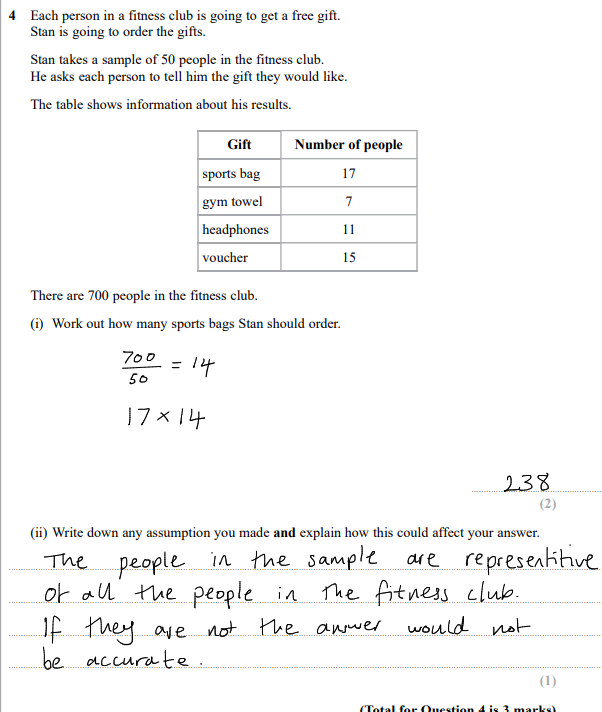 4 Each person in a fitness club is going to get a free gift.
Stan is going to order the gifts.
Stan takes a sample of 50 people in the fitness club.
He asks each person to tell him the gift they would like.
The table shows information about his results.
Gift Number of people
sports bag 17
gym towel 7
headphones 11
voucher 15
There are 700 people in the fitness club.
(i) Work out how many sports bags Stan should order.
700/50 = 14
17 × 14
238
(2)
(ii) Write down any assumption you made and explain how this could affect your answer.
The people in the sample are representitive
of all the people in the fitness club.
If they are not the answer would not
be accurate.
(1)
(Total for Question 4 is 3 marks)